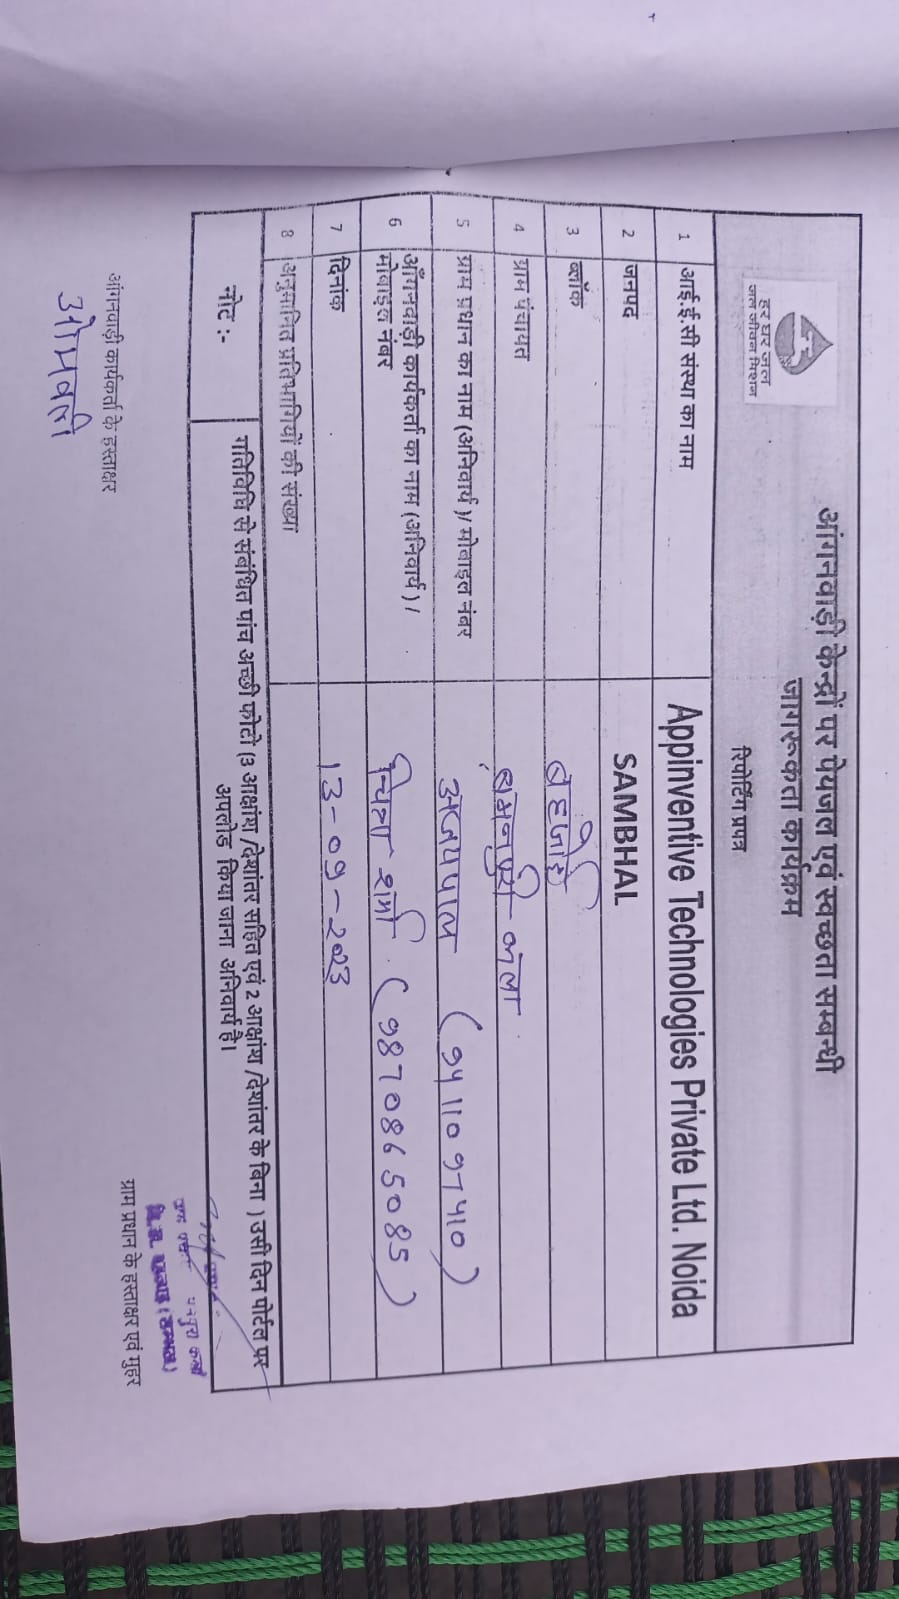 हर घर जल
जल जीवन मिशन
आंगनवाड़ी केन्द्रों पर पेयजल एवं स्वच्छता सम्बन्धी
जागरूकता कार्यक्रम
रिपोर्टिंग प्रपत्र
1 आई.ई.सी संस्था का नाम Appinventive Technologies Private Ltd. Noida
2 जनपद SAMBHAL
3 ब्लॉक
4 ग्राम पंचायत
5 ग्राम प्रधान का नाम (अनिवार्य )/ मोबाइल नंबर अजयपाल (9411097410)
6 आँगनवाड़ी कार्यकर्ता का नाम (अनिवार्य ) /
मोबाइल नंबर शर्मा (9870865085)
7 दिनांक 13-09-2023
8 अनुमानित प्रतिभागियों की संख्या
नोट :- गतिविधि से संबंधित पांच अच्छी फोटो (3 आक्षांश /देशांतर सहित एवं 2 आक्षांश /देशांतर के बिना ) उसी दिन पोर्टल पर
अपलोड किया जाना अनिवार्य है।
आंगनवाड़ी कार्यकर्ता के हस्ताक्षर
ग्राम प्रधान के हस्ताक्षर एवं मुहर